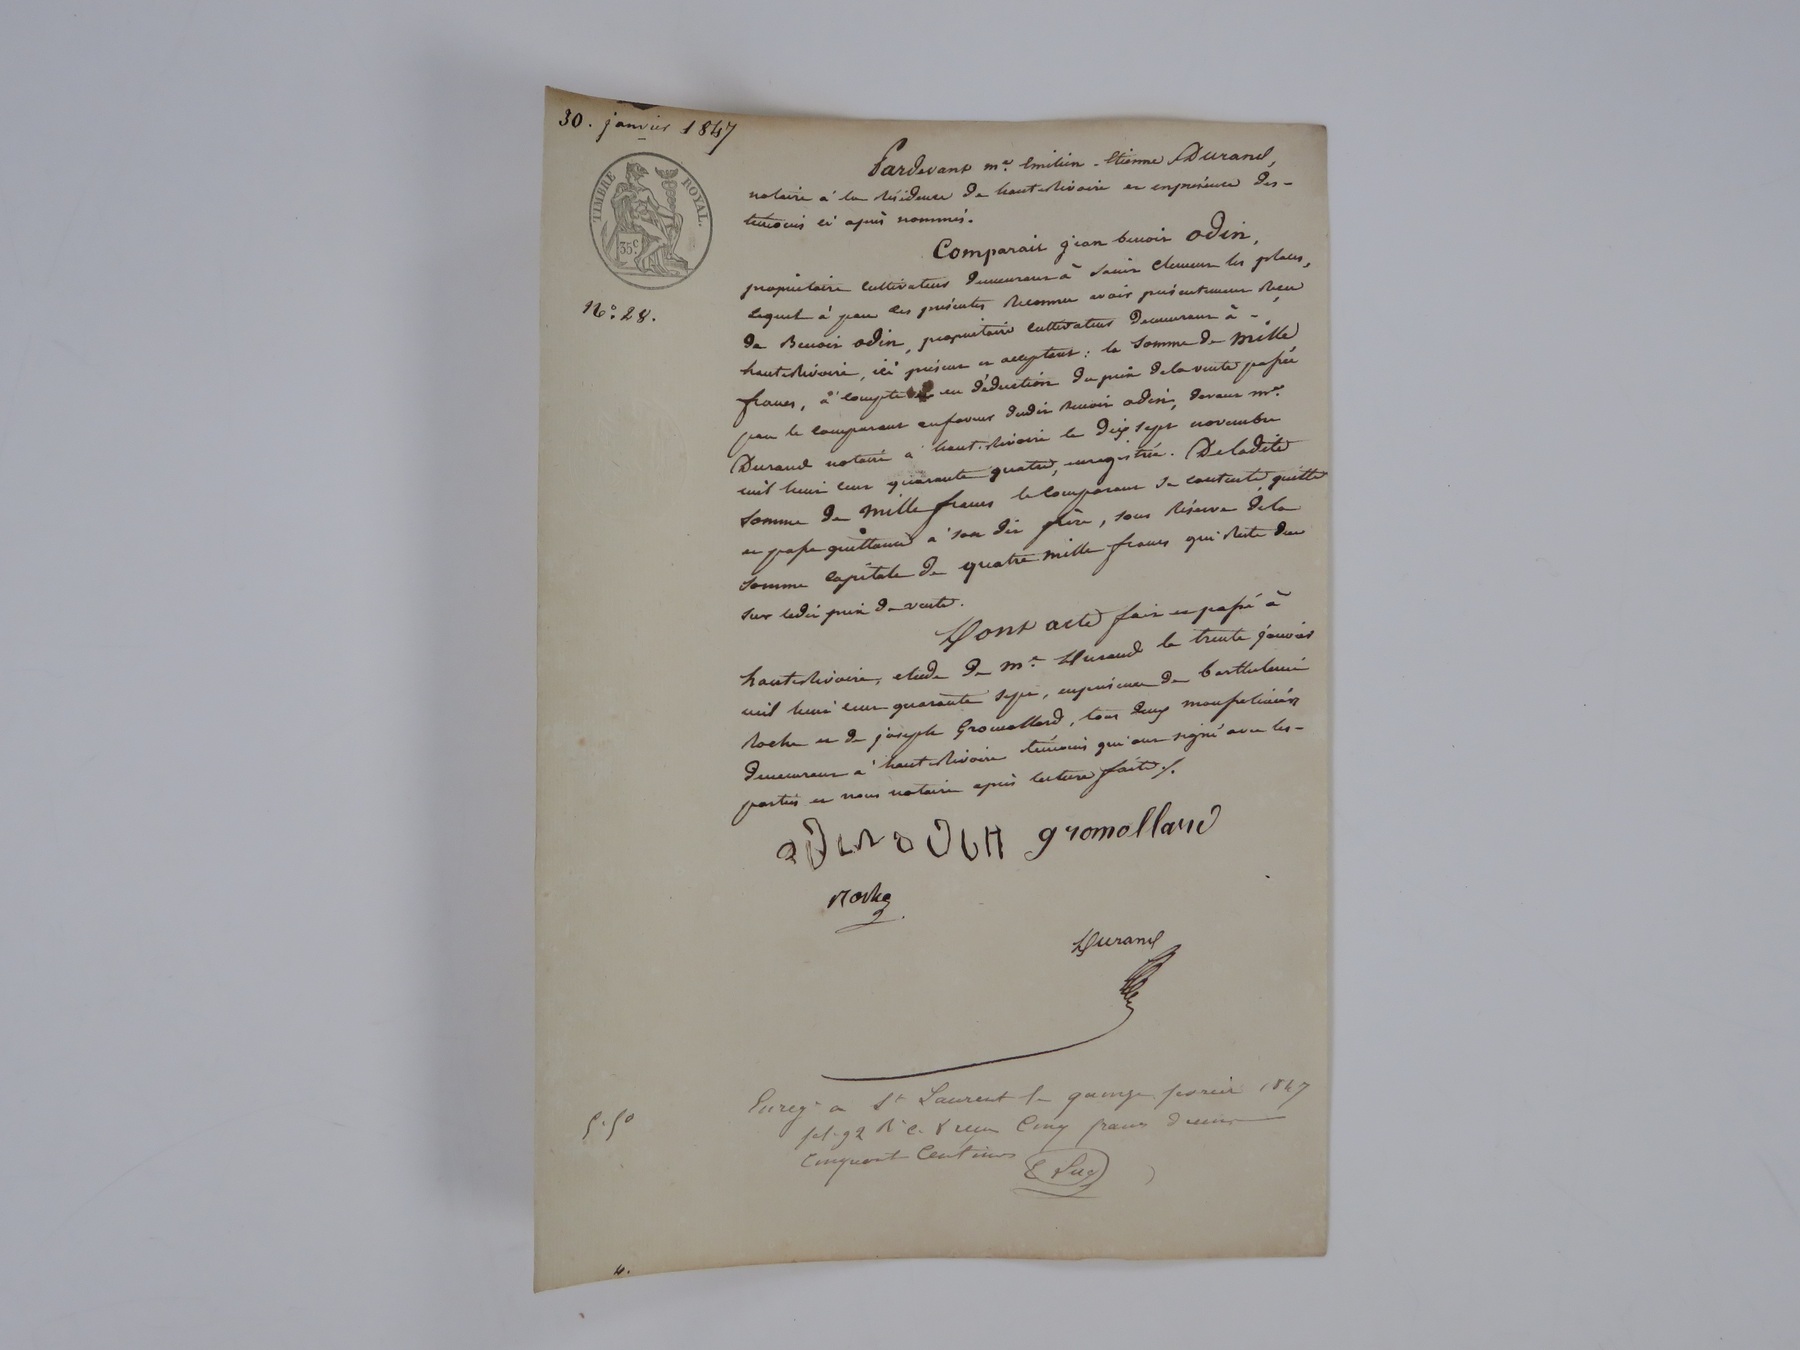 30. janvier 1847
TIMBRE ROYAL
35c
N°. 28.
Pardevant me. Emilien-Etienne Durand,
notaire à la résidence de hauterivoire et en présence des-
témoins ci après nommés.
Comparait jean benoit odin,
propriétaire cultivateur demeurant à saint Clément les places,
lequel à par ces présentes reconnu avoir présentement reçu
de Benoit odin, propriétaire cultivateur demeurant à -
hauterivoire, ici présent et acceptant: la somme de mille
francs, à compte et en déduction du prix de la vente passée
par le comparant en faveur dudit benoit odin, devant me.
Durand notaire à hauterivoire le dix sept novembre
mil huit cent quarante quatre, enregistrée. De ladite
somme de mille francs le comparant se contente, quitte
et passe quittance à son dit frère, sous réserve de la
somme capitale de quatre mille francs qui reste due
sur ledit prix de vente.
Dont acte fait et passé à
hauterivoire, etude de me. Durand le trente janvier
mil huit cent quarante sept, en présence de barthelemi
roche et de joseph Gromollard, tous deux
demeurant à hauterivoire témoins qui ont signé avec les-
parties et nous notaire après lecture faite./.
odin odin gromollard
roche
Durand
Enregé a St Laurent le quinze fevrier 1847
fol. 92 Ro c. 8 reçu Cinq francs decime
5.50
Cinquante Centimes
4.